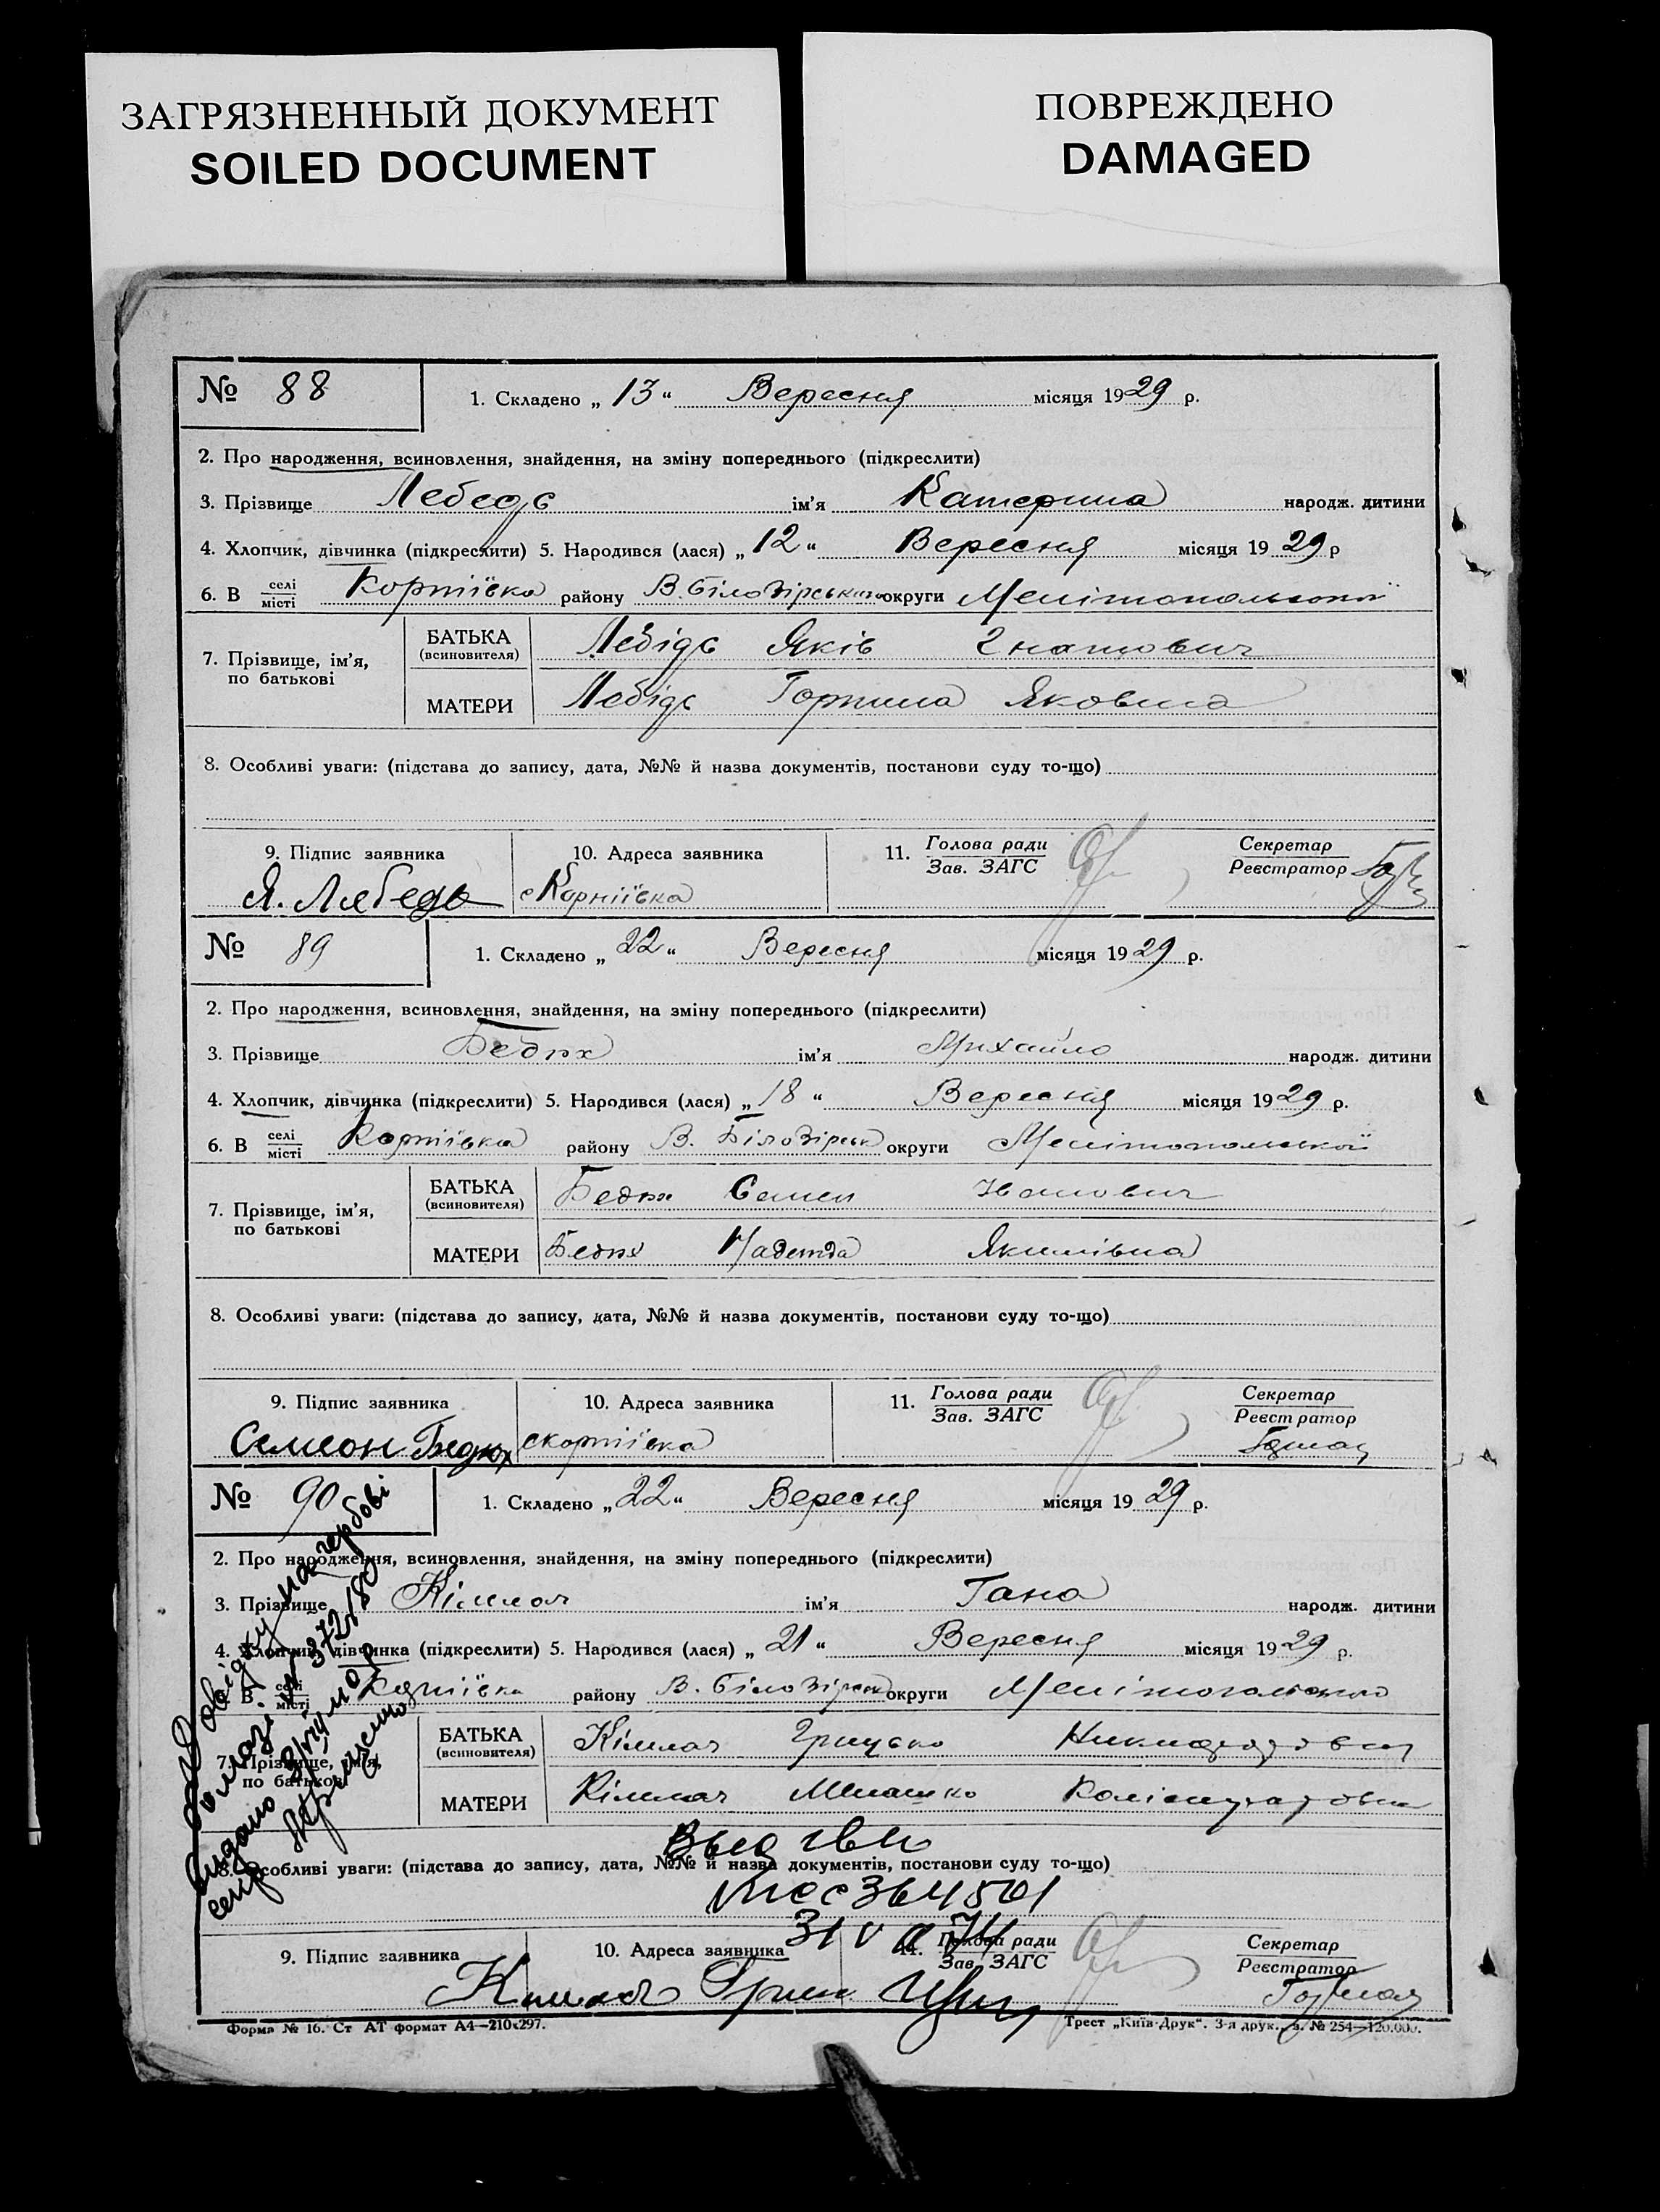 ЗАГРЯЗНЕННЫЙ ДОКУМЕНТ
SOILED DOCUMENT
ПОВРЕЖДЕНО
DAMAGED
№ 88 1. Складено „ 13 “ Вересня місяця 1929 р.
2. Про народження, всиновлення, знайдення, на зміну попереднього (підкреслити)
3. Прізвище Лебедь ім'я Катерина народж. дитини
4. Хлопчик, дівчинка (підкреслити) 5. Народився (лася) „ 12 “ Вересня місяця 19 29 р
6. В селі місті Корніївка району В. Білозірськ округи Мелітопольської
7. Прізвище, ім'я, по батькові
БАТЬКА (всиновителя) Лебідь Яків Гнатович
МАТЕРИ Лебідь Горпина Яковна
8. Особливі уваги: (підстава до запису, дата, №№ й назва документів, постанови суду то-що)
9. Підпис заявника 10. Адреса заявника 11. Голова ради Зав. ЗАГС Секретар Реєстратор
Я. Лебедь с Корніївка
№ 89 1. Складено „ 22 “ Вересня місяця 1929 р.
2. Про народження, всиновлення, знайдення, на зміну попереднього (підкреслити)
3. Прізвище Бедюх ім'я Михайло народж. дитини
4. Хлопчик, дівчинка (підкреслити) 5. Народився (лася) „ 18 “ Вересня місяця 1929 р.
6. В селі місті Корніївка району В. Білозірськ округи Мелітопольської
7. Прізвище, ім'я, по батькові
БАТЬКА (всиновителя) Бедюх Семен Іванович
МАТЕРИ Бедюх Надежда Якимівна
8. Особливі уваги: (підстава до запису, дата, №№ й назва документів, постанови суду то-що)
9. Підпис заявника 10. Адреса заявника 11. Голова ради Зав. ЗАГС Секретар Реєстратор
Семеон Бедюх с Корніївка
№ 90 1. Складено „ 22 “ Вересня місяця 19 29 р.
2. Про народження, всиновлення, знайдення, на зміну попереднього (підкреслити)
3. Прізвище ім'я Гана народж. дитини
4. Хлопчик, дівчинка (підкреслити) 5. Народився (лася) „ 21 “ Вересня місяця 1929 р.
6. В селі місті Корніївка району В. Білозірськ округи
7. Прізвище, ім'я, по батькові
БАТЬКА (всиновителя) Грицько
МАТЕРИ
8. Особливі уваги: (підстава до запису, дата, №№ й назва документів, постанови суду то-що)
364501
31 V
9. Підпис заявника 10. Адреса заявника 11. Голова ради Зав. ЗАГС Секретар Реєстратор
Форма № 16. Ст АТ формат А4—210х297. Трест „Київ-Друк“. 3-я друк., з. № 254—120.000.